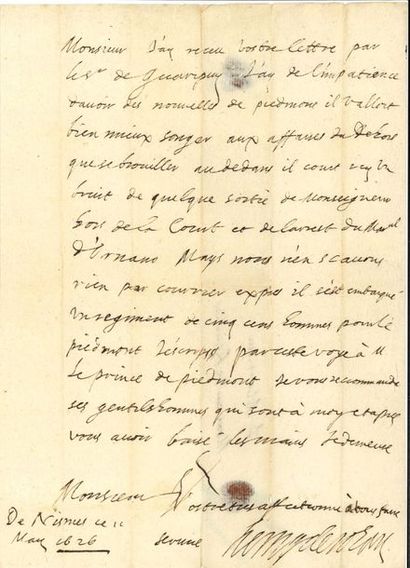 Monsieur J'ay receu vostre lettre par
le sr de J'ay de l'impatience
davoir des nouvelles de piedmont il valloit
bien mieux songer aux affaires du dehors
que se brouiller au dedans il court icy un
bruit de quelque sortie de Monseigneur
hors de la Court et de larrest du Maral
d'Ornano Mays nous n'en scavons
rien par courrier expres il s'est embarqué
un regiment de cinq cens hommes pour le
piedmont J'escrips par ceste voye à M
le prince de piedmont Je vous recommande
ses gentilshommes qui sont à moy et apres
vous avoir baisé les mains Je demeure
Monsieur
Vostre tres affectionne à vous faire
De Nismes ce 11
May 1626 service